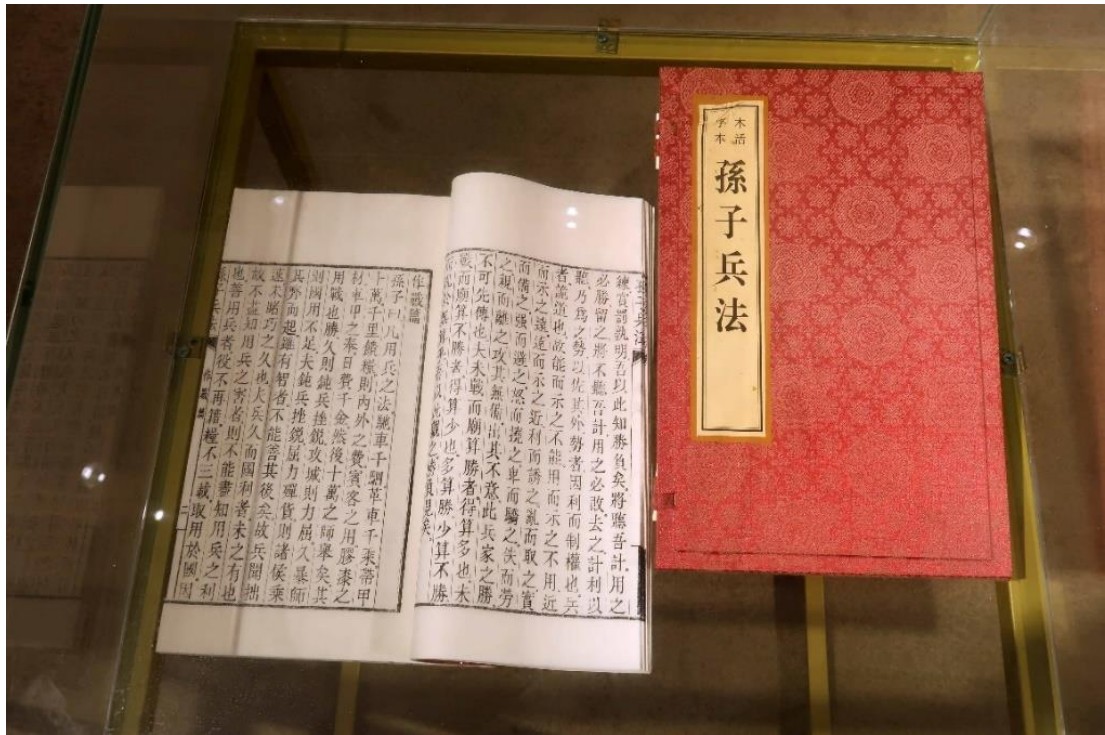 木活
字本
孫子兵法
孫子兵法
練賞罰孰明吾以此知勝負矣將聽吾計用之
必勝留之將不聽吾計用之必敗去之計利以
聽乃爲之勢以佐其外勢者因利而制權也兵
者詭道也故能而示之不能用而示之不用近
而示之遠遠而示之近利而誘之亂而取之實
而備之强而避之怒而撓之卑而驕之佚而勞
之親而離之攻其無備出其不意此兵家之勝
不可先傳也夫未戰而廟算勝者得算多也未
戰而廟算不勝者得算少也多算勝少算不勝
而況於無算乎吾以此觀之勝負見矣
作戰篇
孫子曰凡用兵之法馳車千駟革車千乘帶甲
十萬千里饋糧則內外之費賓客之用膠漆之
材車甲之奉日費千金然後十萬之師舉矣其
用戰也勝久則鈍兵挫鋭攻城則力屈久暴師
則國用不足夫鈍兵挫鋭屈力殫貨則諸侯乘
其弊而起雖有智者不能善其後矣故兵聞拙
速未睹巧之久也夫兵久而國利者未之有也
故不盡知用兵之害者則不能盡知用兵之利
也善用兵者役不再籍糧不三載取用於國因
孫子兵法 二